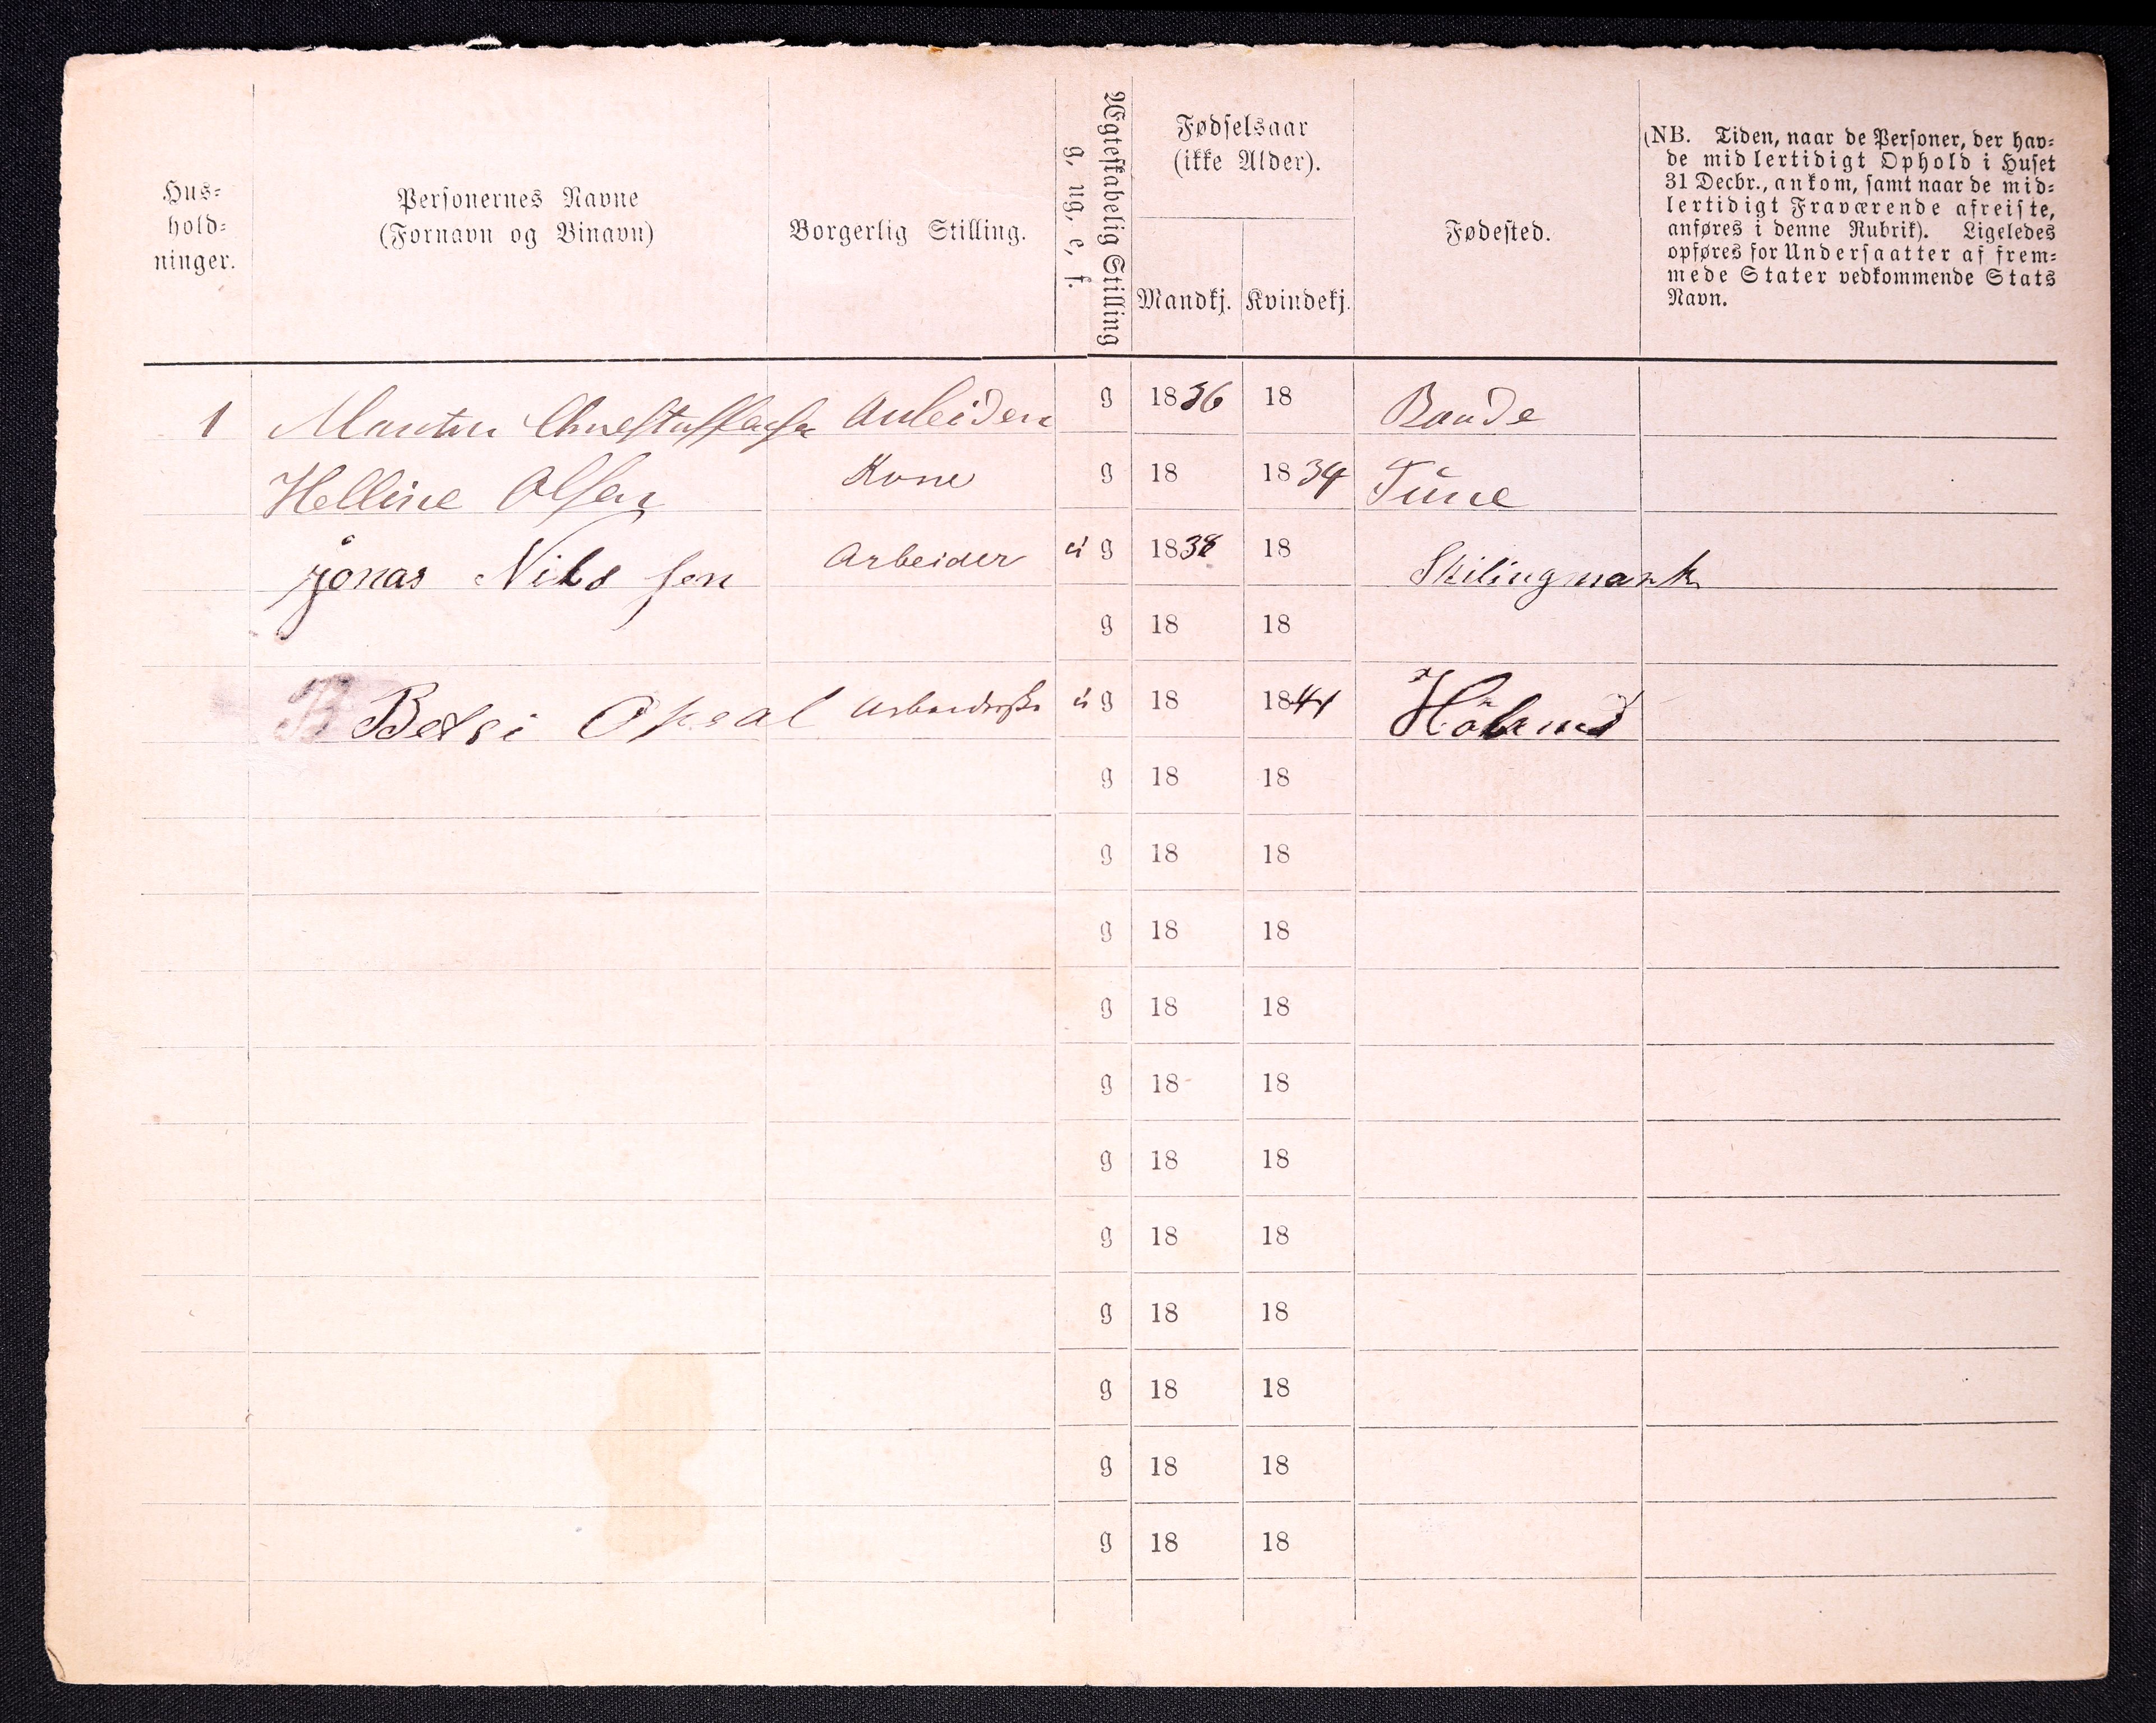 Hus-
hold-
ninger.
Personernes Navne
(Fornavn og Binavn)
Borgerlig Stilling.
Ægteskabelig Stilling
g, ug, e, f.
Fødselsaar
(ikke Alder).
Mandkj. Kvindekj.
Fødested.
(NB. Tiden, naar de Personer, der hav-
de midlertidigt Ophold i Huset
31 Decbr., ankom, samt naar de mid-
lertidigt Fraværende afreiste,
anføres i denne Rubrik). Ligeledes
opføres for Undersaatter af frem-
mede Stater vedkommende Stats
Navn.
1 Martin Arbeider g 1836 18 Raade
Helline Olsen Kone g 18 1834 Tune
Jonas Nils sen Arbeider u g 1838 18 Skilingmark
g 18 18
Betsi Opsal u g 18 1841
g 18 18
g 18 18
g 18 18
g 18 18
g 18 18
g 18 18
g 18 18
g 18 18
g 18 18
g 18 18
g 18 18